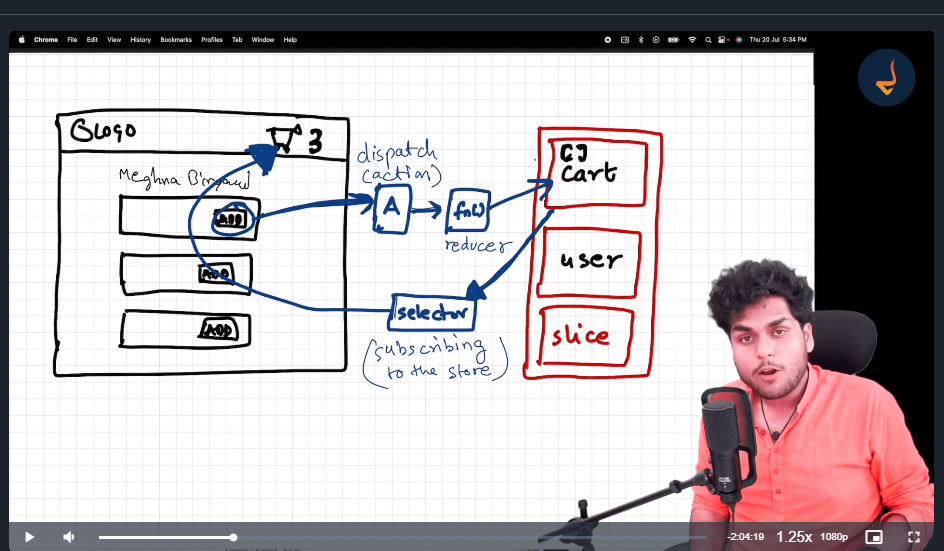 Chrome File Edit View History Bookmarks Profiles Tab Window Help
Thu 20 Jul 5:34 PM
logo
3
Meghna
ADD
ADD
ADD
dispatch
(action)
A
fn()
reducer
selector
(subscribing
to the store)
cart
user
slice
-2:04:19 1.25x 1080p